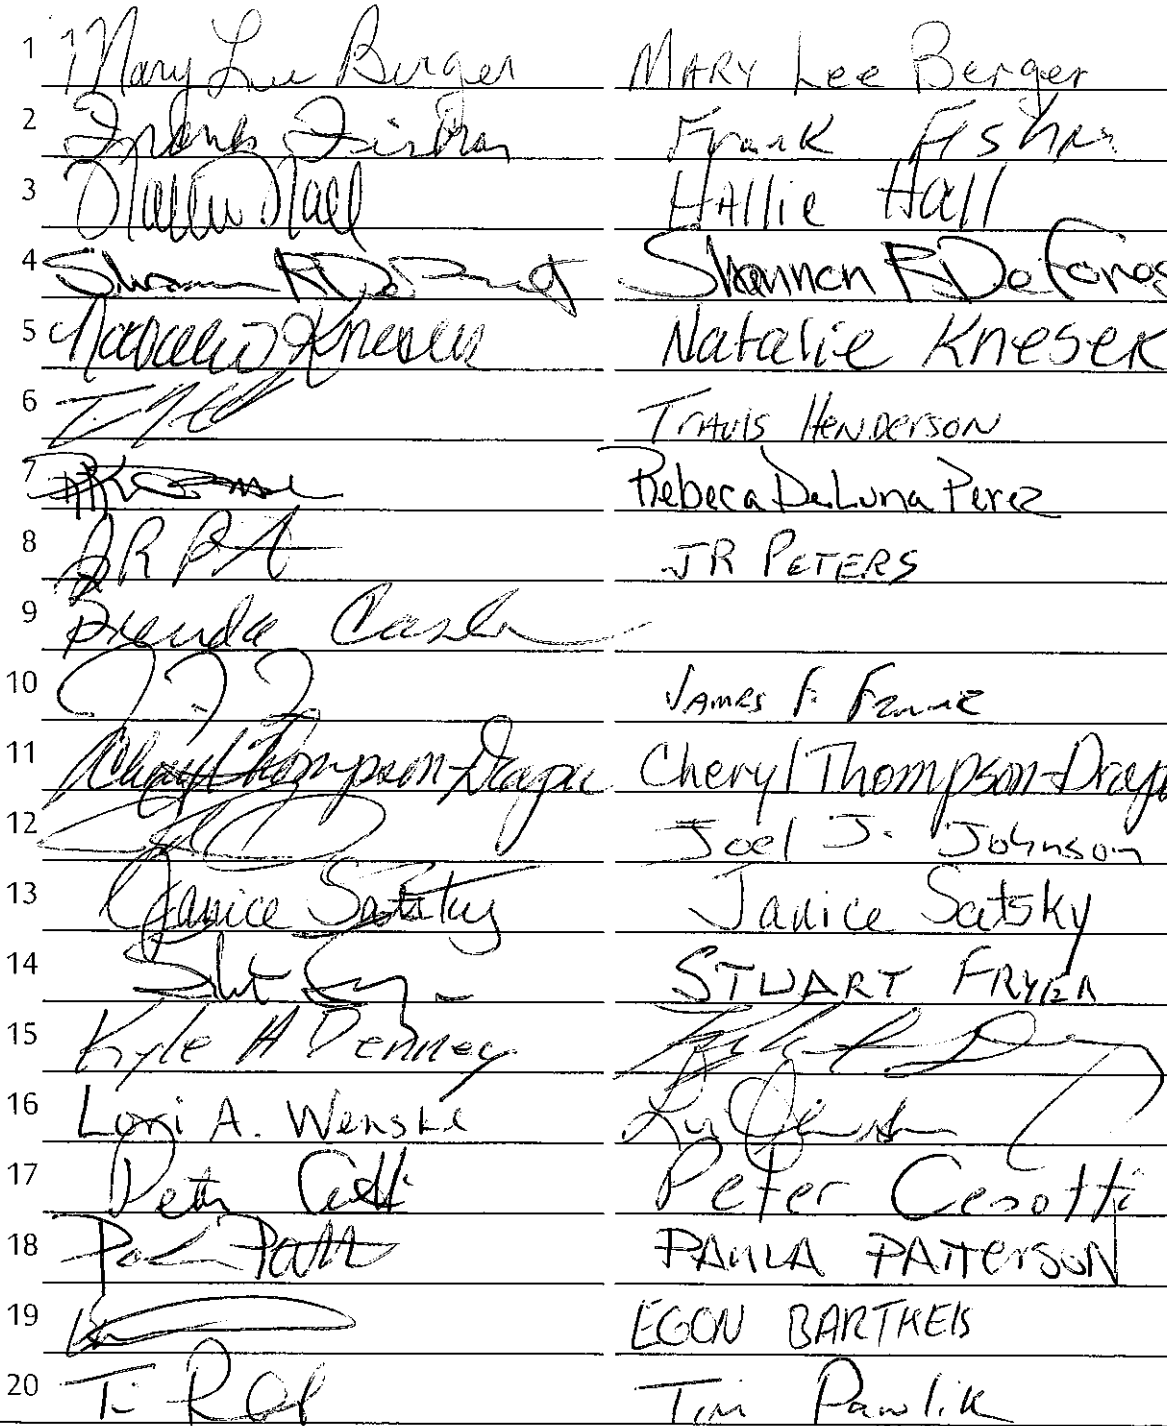 1 Mary Lee Berger MARY Lee Berger
2 Frank Fisher Frank Fisher
3 Hallie Hall HAllie Hall
4 Shannon R DeForest Shannon R DeFores
5 Natalie Knesek Natalie Knesek
6 Travis HENDERSON
7 Rebeca DeLuna Perez
8 JR P JR PETERS
9 Brenda
10 JAMES F.
11 Cheryl Thompson-Draper Cheryl Thompson-Drape
12 Joel J. Johnson
13 Janice Satsky Janice Satsky
14 STUART FRYER
15 Kyle A Denney
16 Lori A. Wenske
17 Peter Cesotti Peter Cesotti
18 PAULA PATTERSON
19 EGON BARTHELS
20 Tim Pawlik